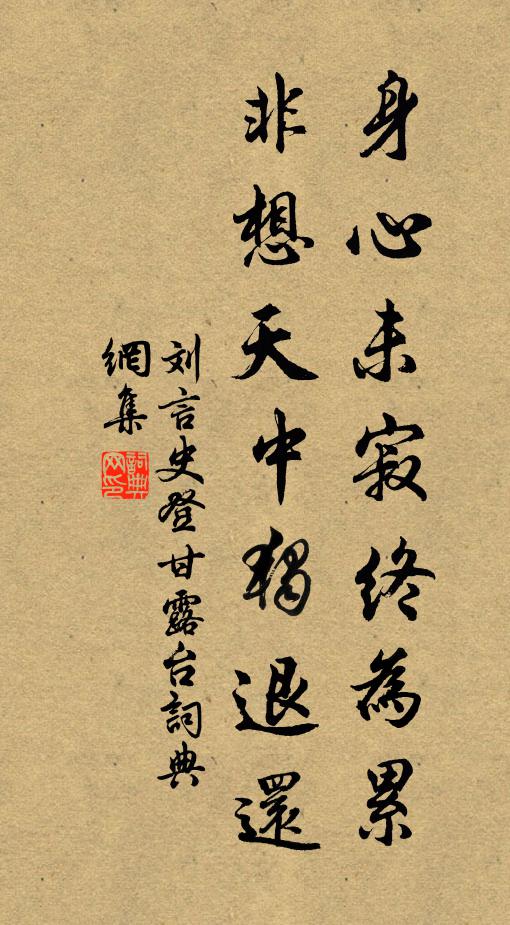 身心未寂終為累
非想天中獨退還
刘言史登甘露台詞典
網集
詞典網印